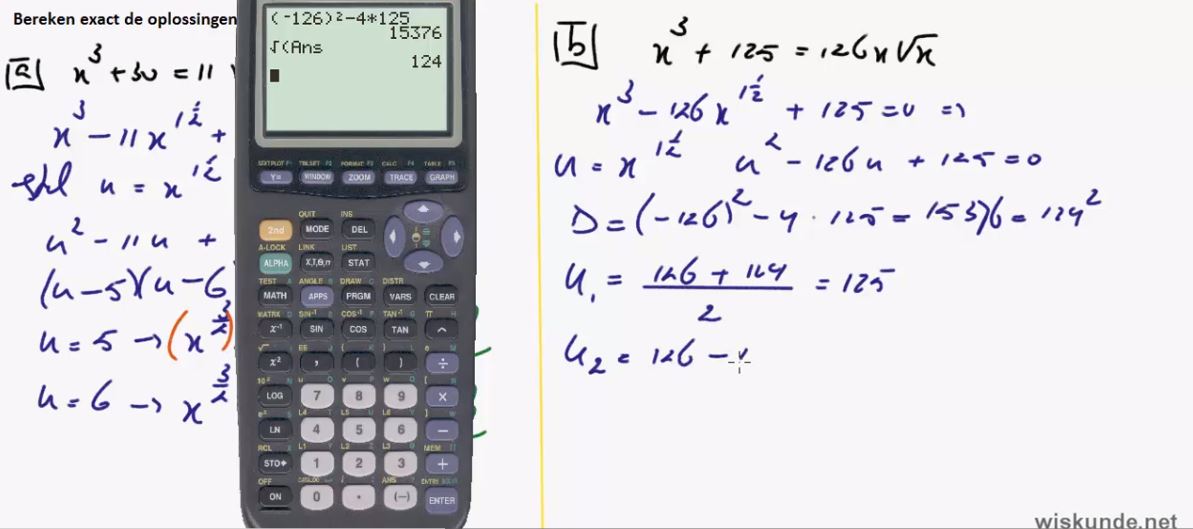 Bereken exact de oplossingen
a x³ + 30 = 11
x³ − 11x^(1½) +
stel u = x^(1½)
u² − 11u +
(u−5)(u−6
u = 5 → (x^(3/2))
u = 6 → x^(3/2)
(-126)²-4*125
15376
√(Ans
124
STAT PLOT F1 TBLSET F2 FORMAT F3 CALC F4 TABLE F5
Y= WINDOW ZOOM TRACE GRAPH
QUIT INS
2nd MODE DEL
A-LOCK LINK LIST
ALPHA X,T,Θ,n STAT
TEST A ANGLE B DRAW C DISTR
MATH APPS PRGM VARS CLEAR
MATRX D SIN⁻¹ E COS⁻¹ F TAN⁻¹ G π H
x⁻¹ SIN COS TAN ^
√ I EE J { K } L e M
x² , ( ) ÷
10ˣ N u O v P w Q [ R
LOG 7 8 9 ×
eˣ S L4 T L5 U L6 V ] W
LN 4 5 6 −
RCL X L1 Y L2 Z L3 Θ MEM "
STO▸ 1 2 3 +
OFF CATALOG i : ANS ? ENTRY SOLVE
ON 0 . (−) ENTER
b x³ + 125 = 126x√x
x³ − 126x^(1½) + 125 = 0 ⇒
u = x^(1½) u² − 126u + 125 = 0
D = (−126)² − 4 · 125 = 15376 = 124²
u₁ = (126 + 124)/2 = 125
u₂ = 126 −
wiskunde.net